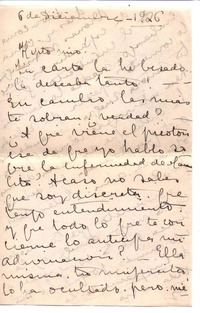 6 de Diciembre - 1926
mio:
tu carta la he besado
la deseaba tanto!
En cambio, las mias
te sobran, verdad?
A que viene el
de que yo hable so
bre la enfermedad de
Acaso no sabes
que soy discreta, que
tengo entendimiento
y que todo lo que te con
cierne lo anticipa mi
adivinación? - Ella
misma, tu mujercita,
lo ha ocultado, pero me